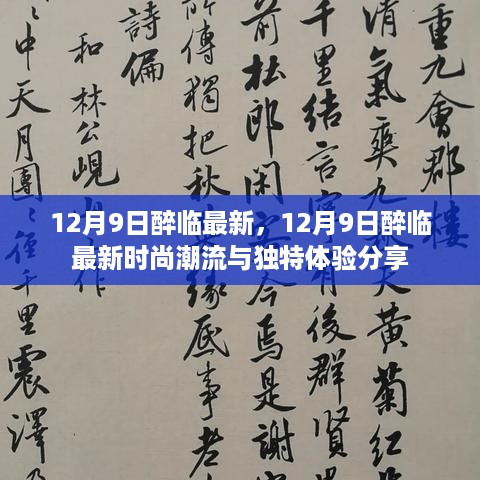 重九會郡樓
清氣爽九天黃菊紅
千里結言寧有後群賢
前杜郎閑客今焉是謝
所傳獨把秋緣底事老
詩偏
和林公峴山
中天月團團徑千里震澤
12月9日醉临最新，12月9日醉临
最新时尚潮流与独特体验分享